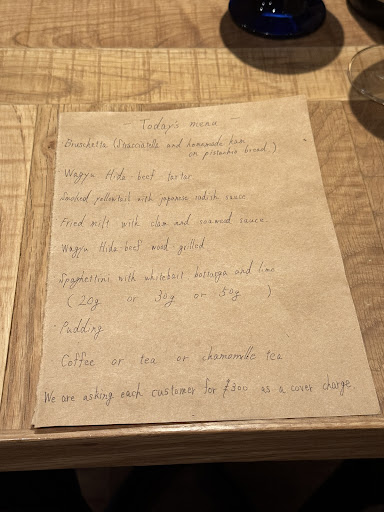 Today's menu
Bruschetta (Stracciatella and homemade ham
on pistachio bread)
Wagyu Hida-beef tartar
Smoked yellowtail with japanese radish sauce
Fried milt with clam and seaweed sauce
Wagyu Hida-beef wood-grilled
Spaghettini with whitebait bottarga and lime
(20g or 30g or 50g )
Pudding
Coffee or tea or chamomile tea
We are asking each customer for ¥300 as a cover charge.